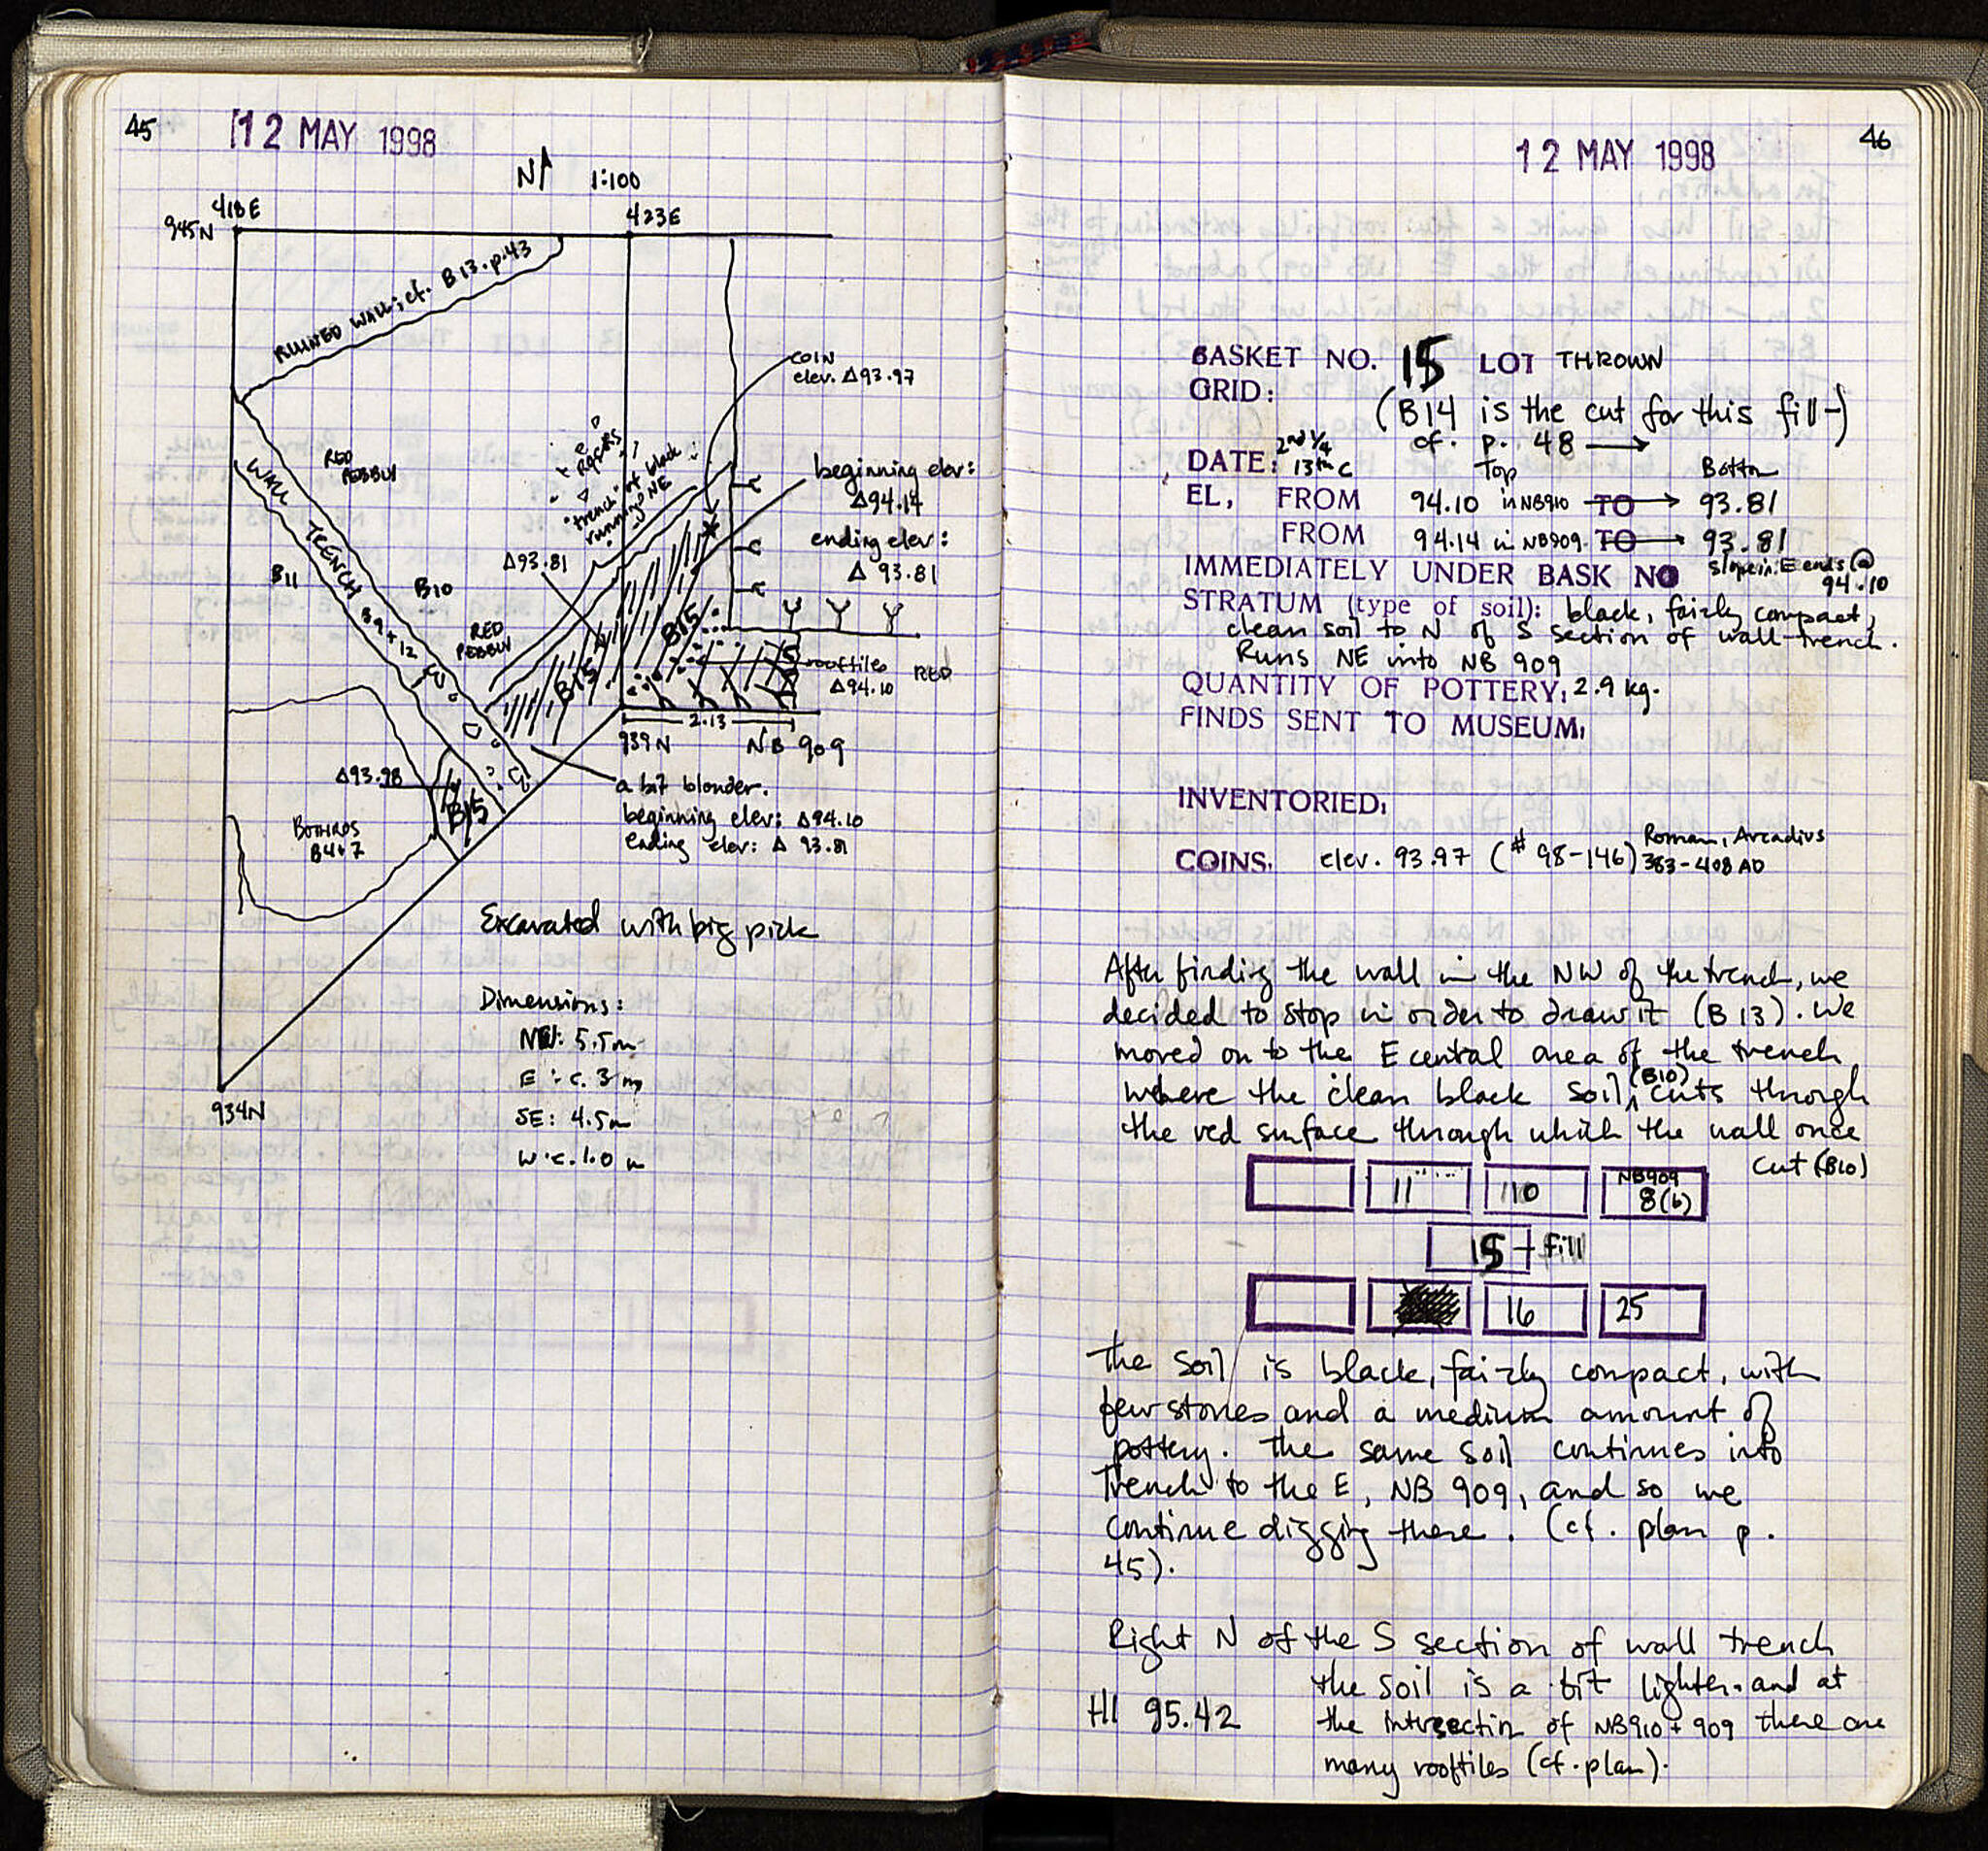 45
12 MAY 1998
N 1:100
418E
423E
945N
RUINED WALL; cf. B13. p.43
COIN
elev. Δ93.97
RED
PEBBLY
"trench" of black
running NE
beginning elev:
Δ94.14
ending elev:
Δ 93.81
Δ93.81
WALL TRENCH B9+12
B11
B10
RED
PEBBLY
B15
B15
rooftiles
Δ94.10
RED
2.13
939N
NB 909
Δ93.98
B15
a bit blonder.
beginning elev: Δ94.10
ending elev: Δ 93.81
BOTHROS
B4+7
Excavated with big pick
Dimensions:
NW: 5.5m
E : c. 3m
SE: 4.5m
W : c. 1.0 m
934N
46
12 MAY 1998
BASKET NO. 15 LOT THROWN
GRID:
(B14 is the cut for this fill-)
cf. p. 48 →
DATE: 2nd 1/4 13th C
Top Bottom
EL, FROM 94.10 in NB910 TO → 93.81
FROM 94.14 in NB909. TO → 93.81
IMMEDIATELY UNDER BASK NO
slope in E ends @
94.10
STRATUM (type of soil): black, fairly compact,
clean soil to N of S section of wall-trench.
Runs NE into NB 909
QUANTITY OF POTTERY, 2.9 kg.
FINDS SENT TO MUSEUM,
INVENTORIED,
COINS. elev. 93.97 (# 98-146) Roman, Arcadius
383-408 AD
After finding the wall in the NW of the trench, we
decided to stop in order to draw it (B13). We
moved on to the E central area of the trench
where the clean black soil (B10) cuts through
the red surface through which the wall once
cut (B10)
11 10 NB909
8(b)
15 - fill
16 25
The soil is black, fairly compact, with
few stones and a medium amount of
pottery. The same soil continues into
Trench to the E, NB 909, and so we
continue digging there. (cf. plan p.
45).
Right N of the S section of wall trench
the soil is a bit lighter and at
HI 95.42
the intersection of NB910 + 909 there are
many rooftiles (cf. plan).